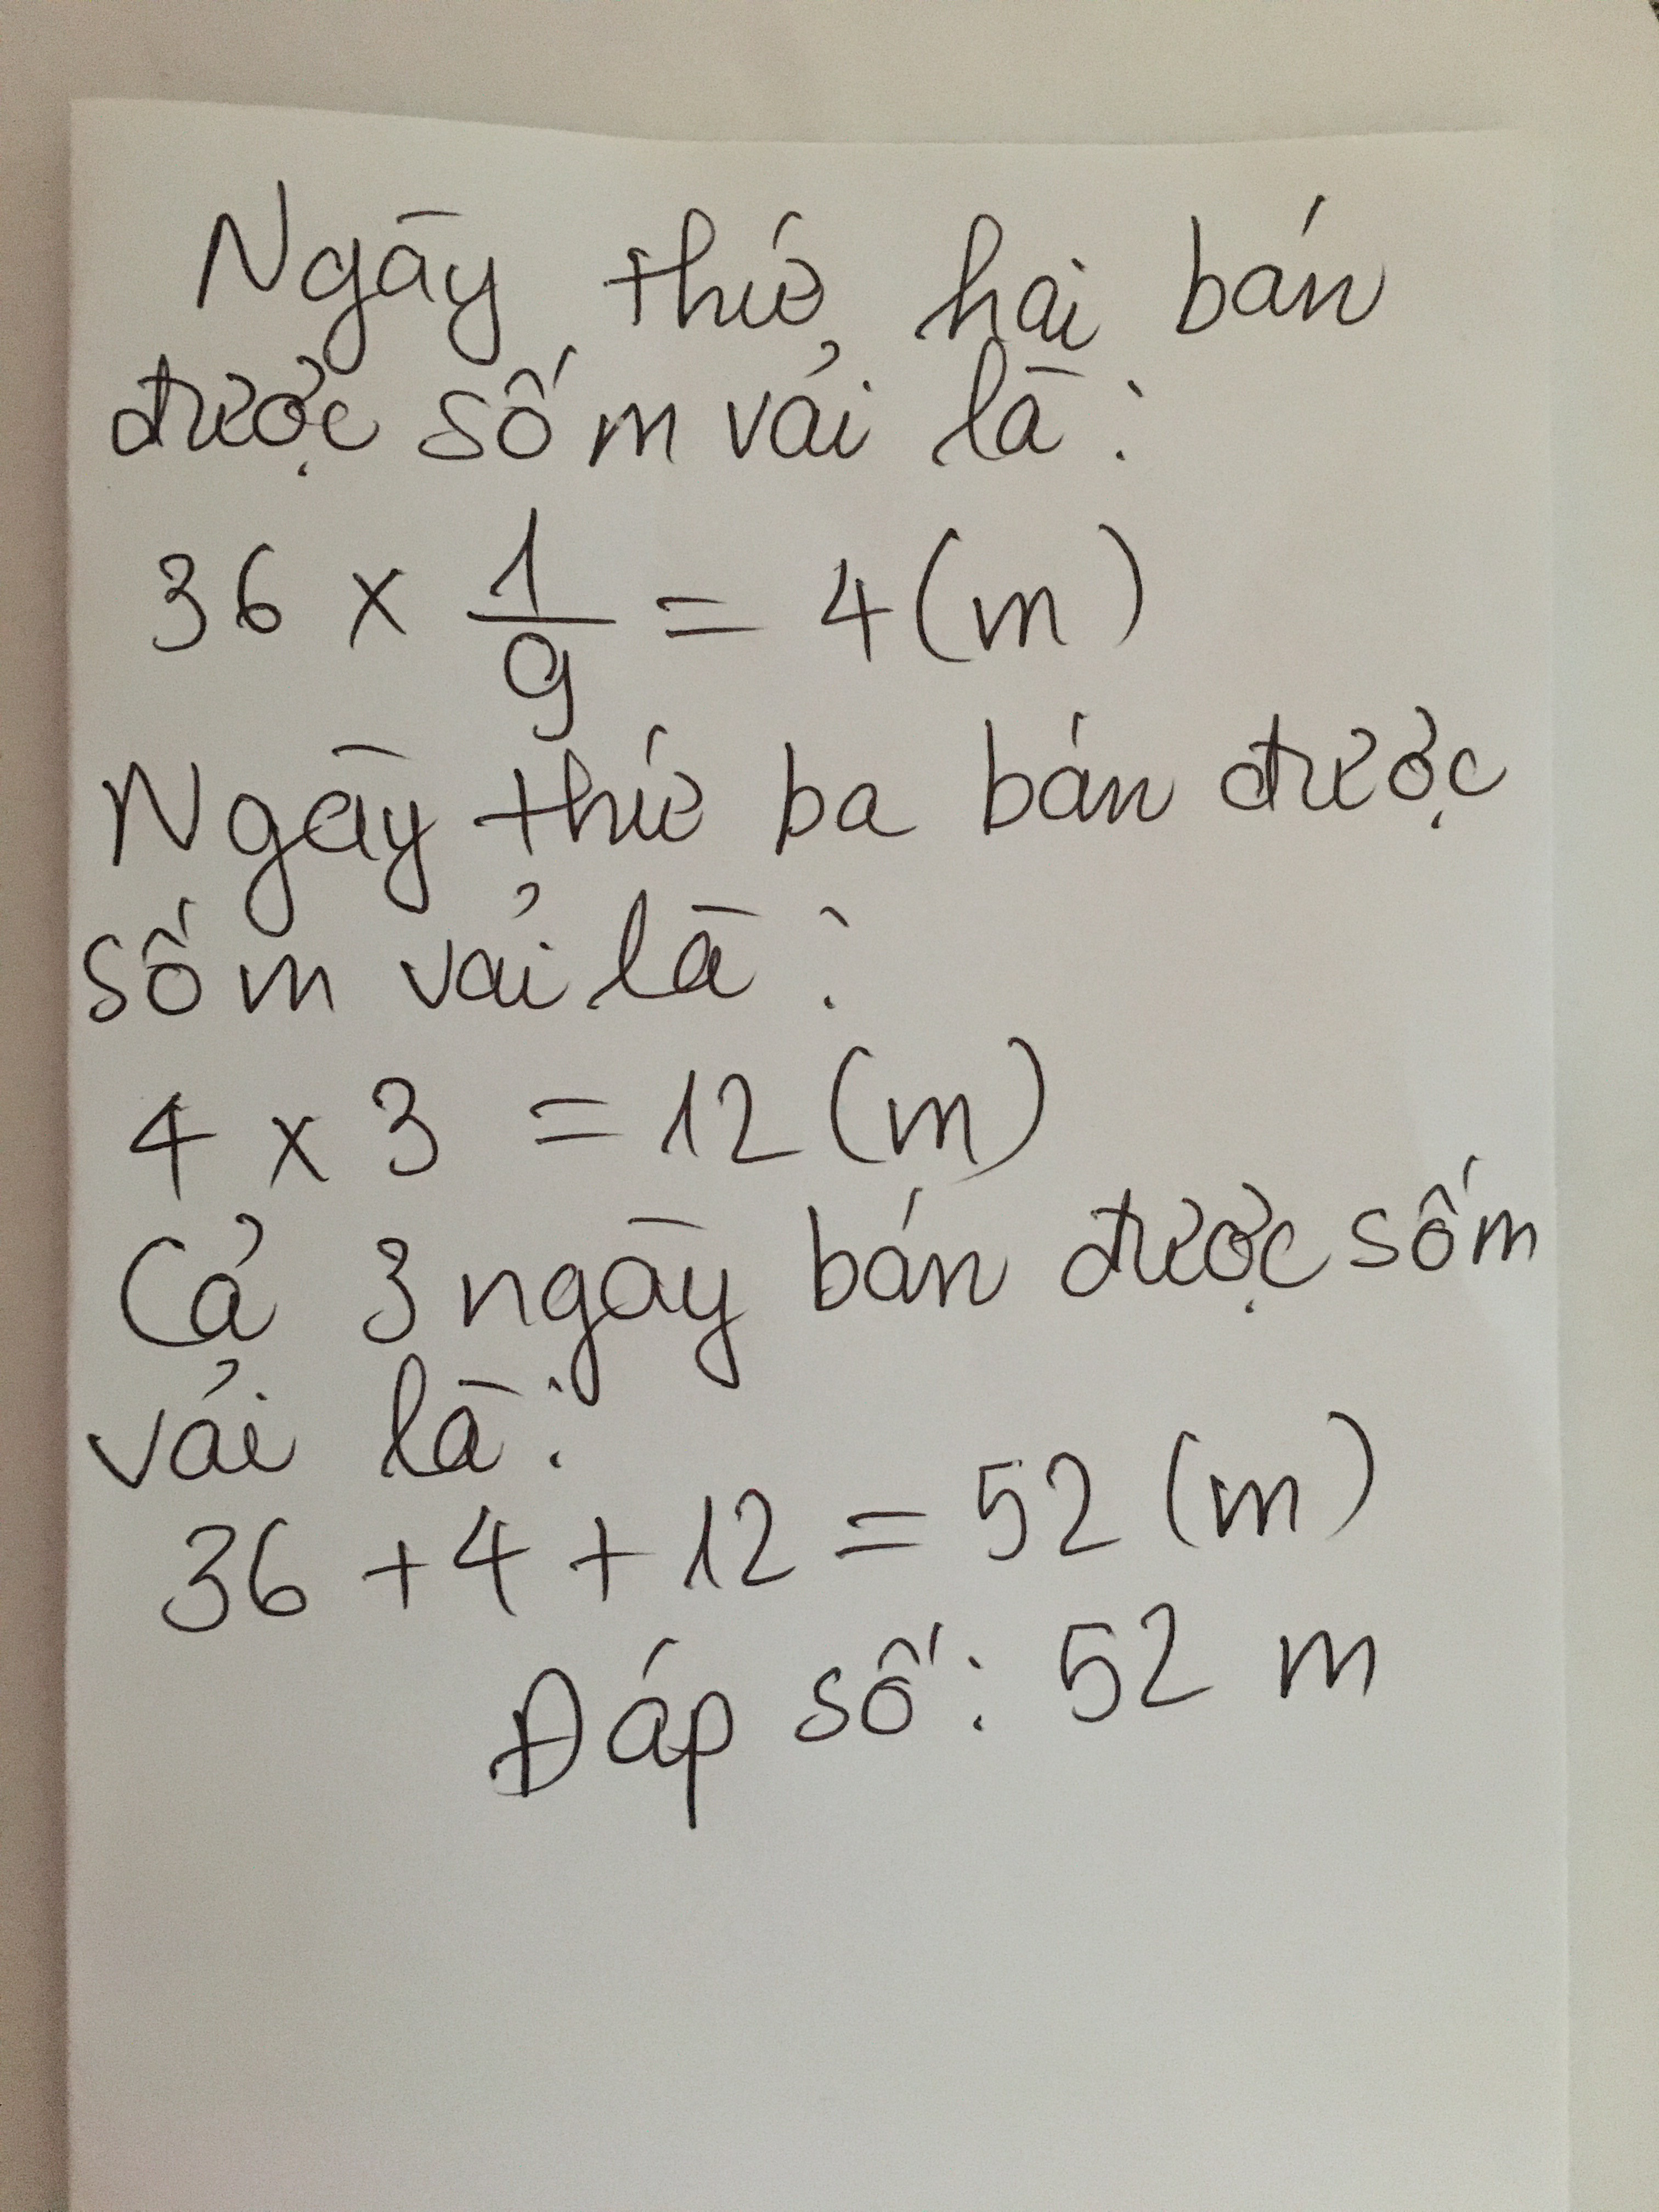 Ngày thứ hai bán
được số m vải là :
36 × 1/9 = 4 (m)
Ngày thứ ba bán được
số m vải là :
4 × 3 = 12 (m)
Cả 3 ngày bán được số m
vải là :
36 + 4 + 12 = 52 (m)
Đáp số : 52 m